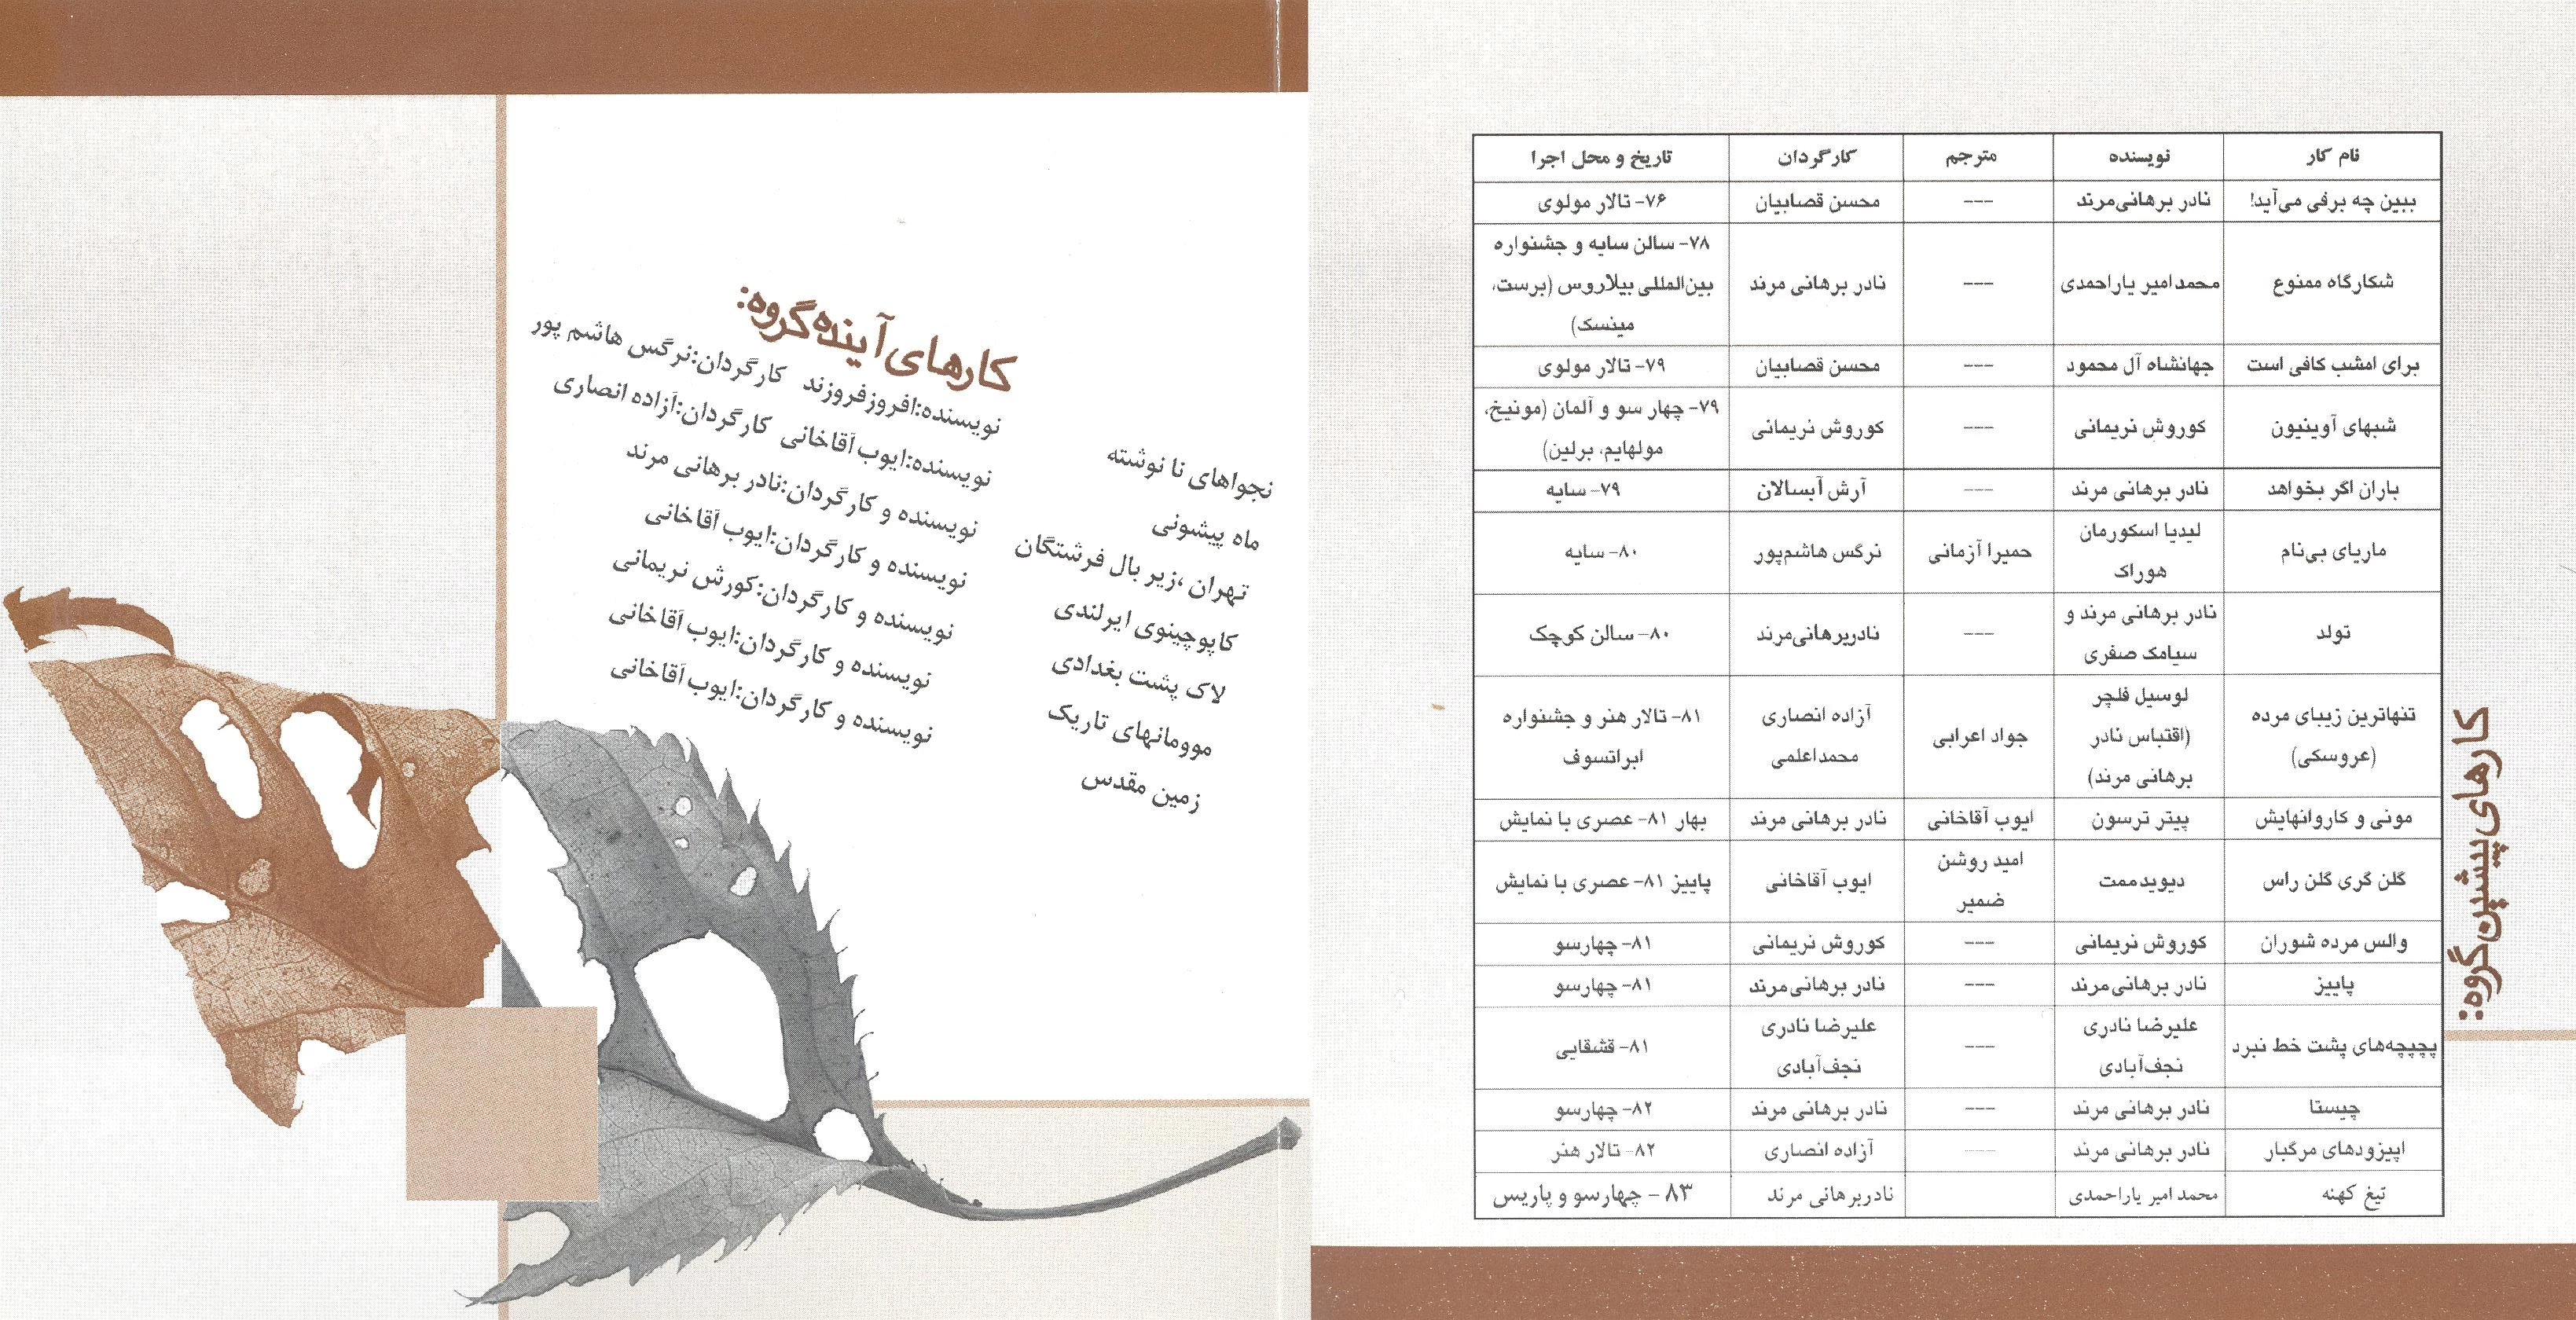 کارهای پیشین گروه:
نام کار	نویسنده	مترجم	کارگردان	تاریخ و محل اجرا
ببین چه برفی می‌آید!	نادر برهانی‌مرند	---	محسن قصابیان	۷۶- تالار مولوی
شکارگاه ممنوع	محمدامیر یاراحمدی	---	نادر برهانی مرند	۷۸- سالن سایه و جشنواره
بین‌المللی بیلاروس (برست،
مینسک)
برای امشب کافی است	جهانشاه آل محمود	---	محسن قصابیان	۷۹- تالار مولوی
شبهای آوینیون	کوروش نریمانی	---	کوروش نریمانی	۷۹- چهار سو و آلمان (مونیخ،
مولهایم، برلین)
باران اگر بخواهد	نادر برهانی مرند	---	آرش آبسالان	۷۹- سایه
ماریای بی‌نام	لیدیا اسکورمان
هوراک	حمیرا آزمانی	نرگس هاشم‌پور	۸۰- سایه
تولد	نادر برهانی مرند و
سیامک صفری	---	نادربرهانی‌مرند	۸۰- سالن کوچک
تنهاترین زیبای مرده
(عروسکی)	لوسیل فلچر
(اقتباس نادر
برهانی مرند)	جواد اعرابی	آزاده انصاری
محمداعلمی	۸۱- تالار هنر و جشنواره
ابراتسوف
مونی و کاروانهایش	پیتر ترسون	ایوب آقاخانی	نادر برهانی مرند	بهار ۸۱- عصری با نمایش
گلن گری گلن راس	دیویدممت	امید روشن
ضمیر	ایوب آقاخانی	پاییز ۸۱- عصری با نمایش
والس مرده شوران	کوروش نریمانی	---	کوروش نریمانی	۸۱- چهارسو
پاییز	نادر برهانی‌مرند	---	نادر برهانی‌مرند	۸۱- چهارسو
پچپچه‌های پشت خط نبرد	علیرضا نادری
نجف‌آبادی	---	علیرضا نادری
نجف‌آبادی	۸۱- قشقایی
چیستا	نادر برهانی مرند	---	نادر برهانی مرند	۸۲- چهارسو
اپیزودهای مرگبار	نادر برهانی مرند	---	آزاده انصاری	۸۲- تالار هنر
تیغ کهنه	محمد امیر یاراحمدی	نادربرهانی مرند	۸۳ - چهارسو و پاریس
کارهای آینده گروه:
نجواهای نا نوشته	نویسنده:افروزفروزند	کارگردان:نرگس هاشم پور
ماه پیشونی	نویسنده:ایوب آقاخانی	کارگردان:آزاده انصاری
تهران ،زیر بال فرشتگان	نویسنده و کارگردان:نادر برهانی مرند
کاپوچینوی ایرلندی	نویسنده و کارگردان:ایوب آقاخانی
لاک پشت بغدادی	نویسنده و کارگردان:کورش نریمانی
موومانهای تاریک	نویسنده و کارگردان:ایوب آقاخانی
زمین مقدس	نویسنده و کارگردان:ایوب آقاخانی